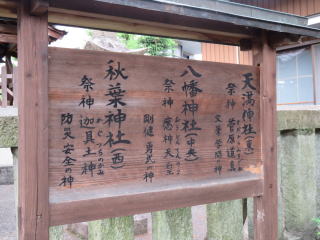 天満神社(東)
祭神 菅原道真
文筆学問の神
八幡神社(中央)
祭神 應神天皇
剛健勇武の神
秋葉神社(西)
祭神 迦具土神
かぐつちのかみ
防災安全の神